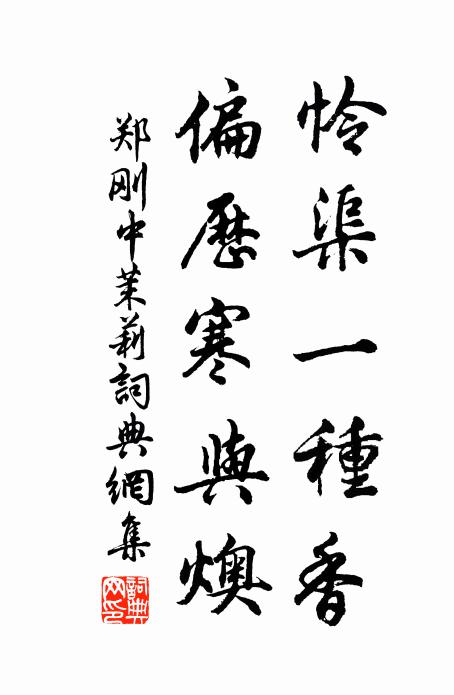 怜渠一種香
偏歷寒與燠
郑刚中茉莉詞典網集
詞典网印